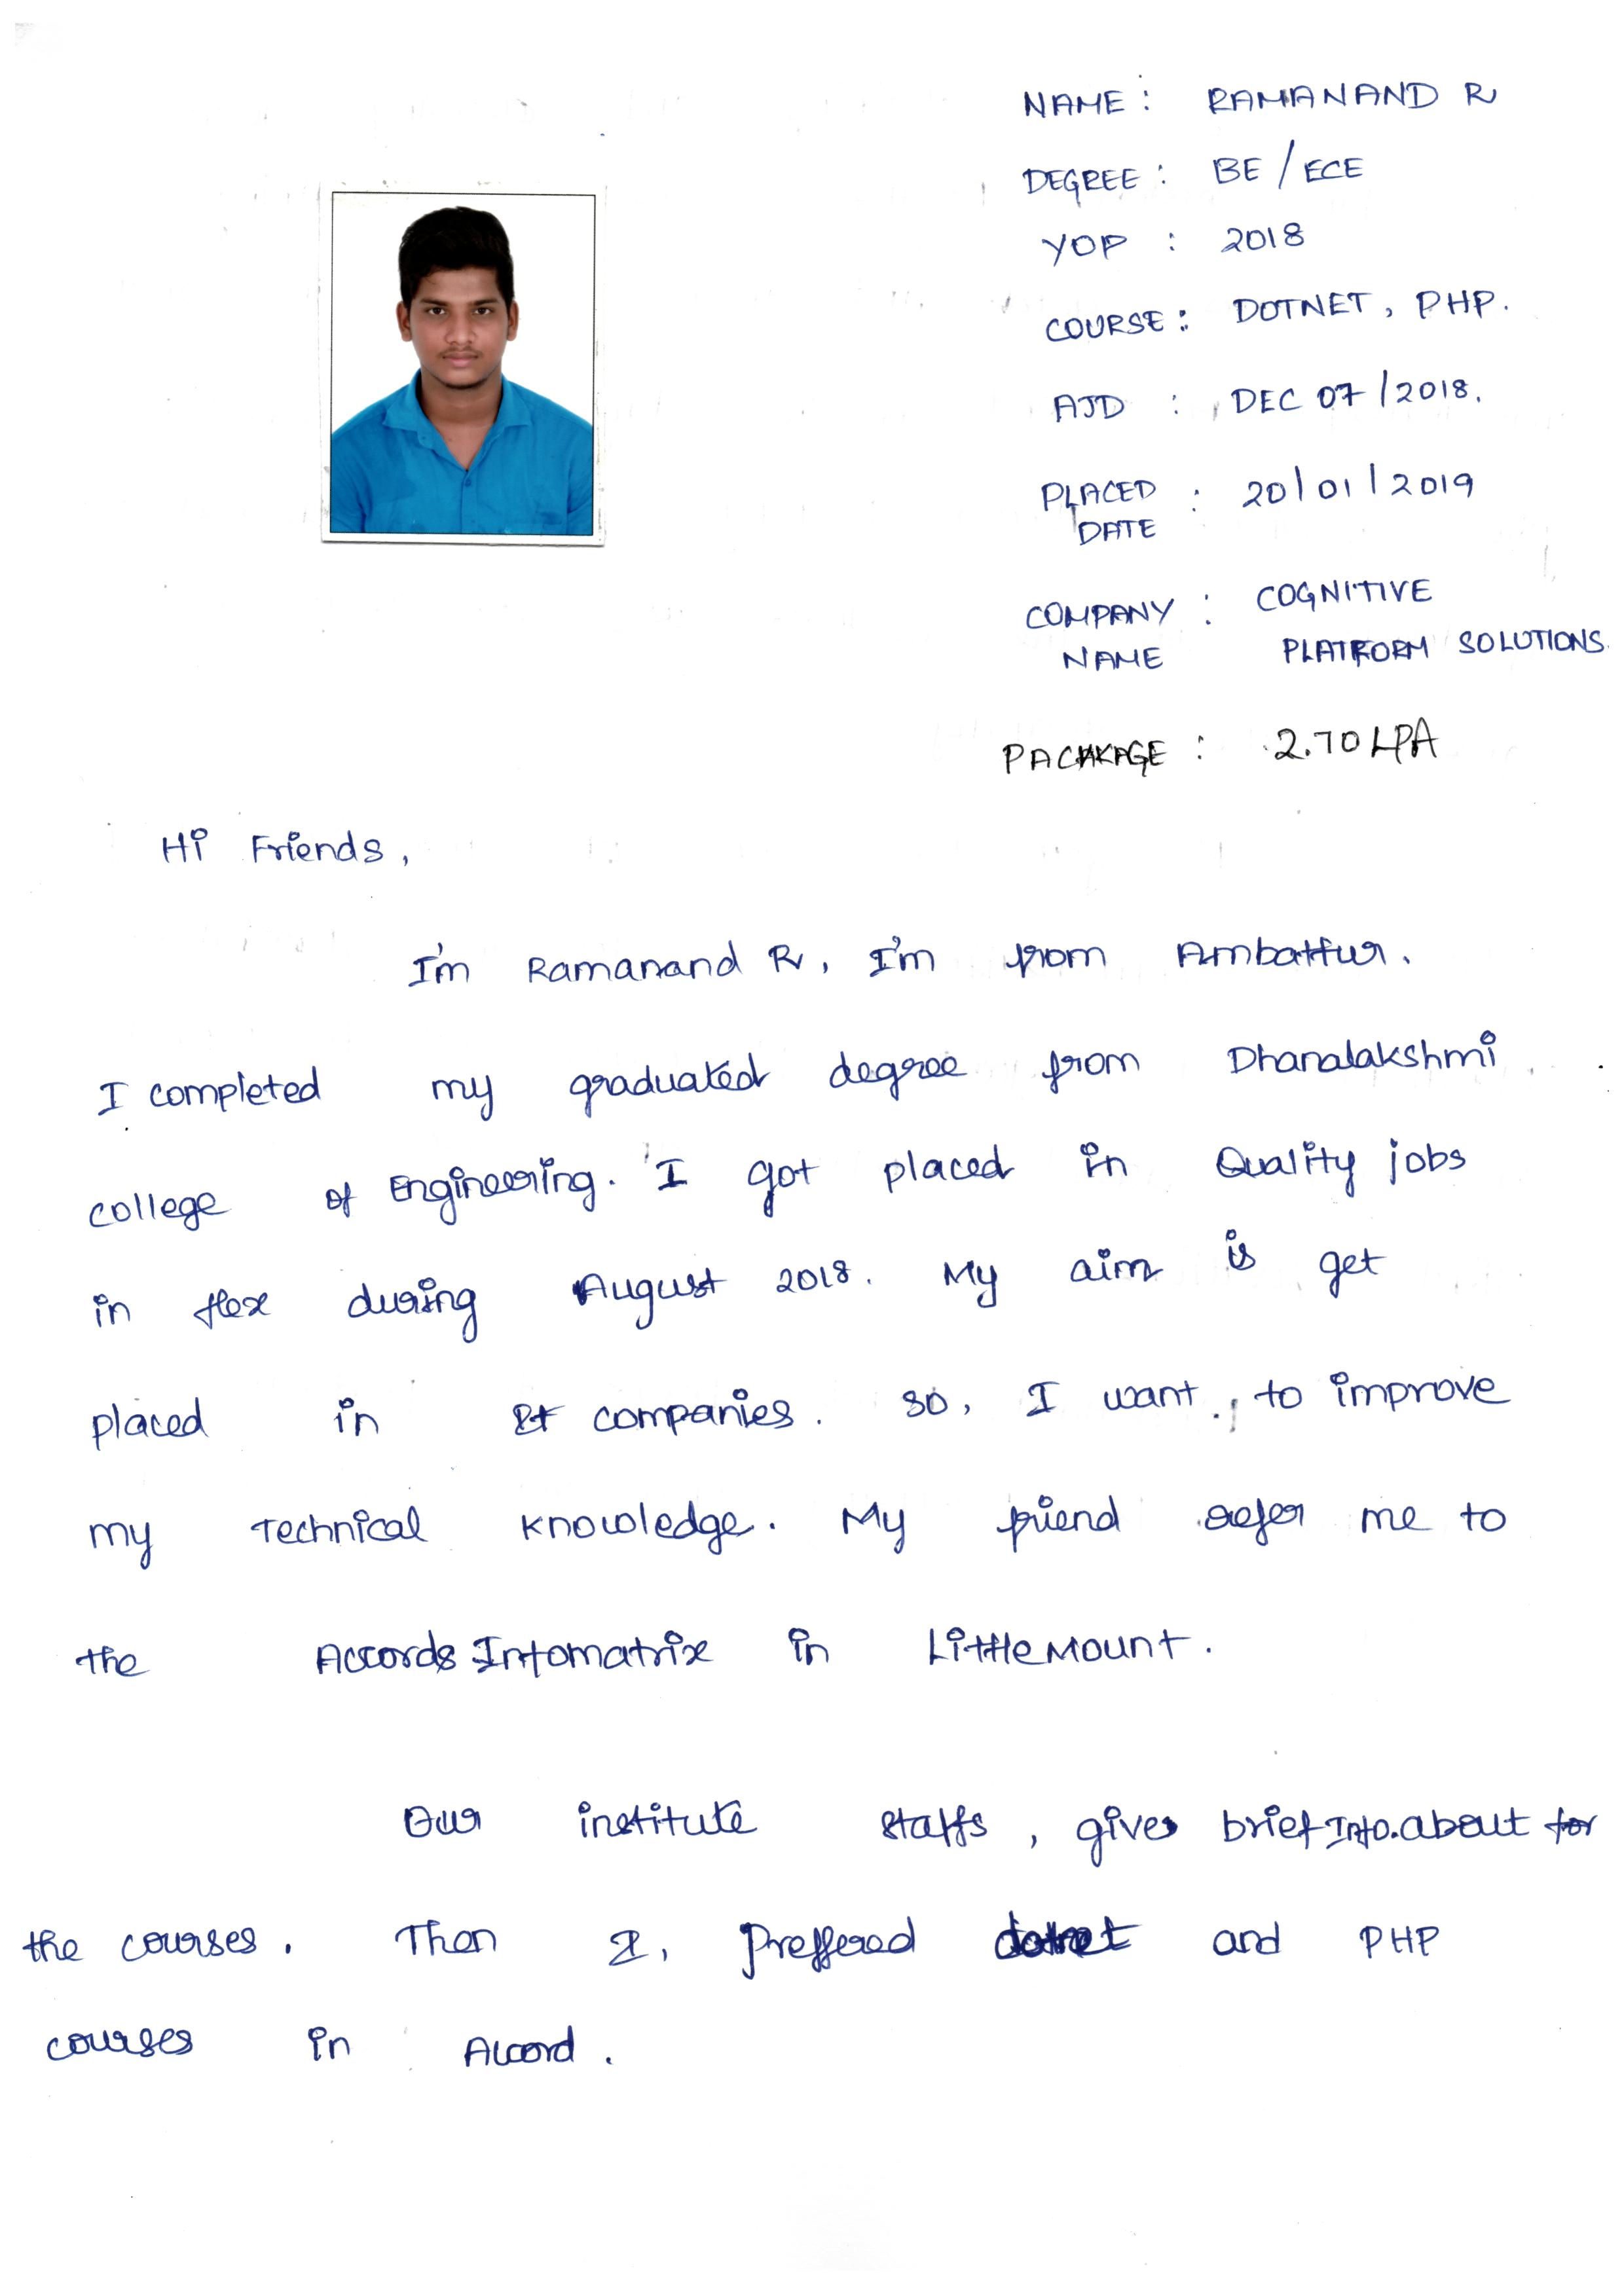 NAME : RAMANAND R
DEGREE : BE / ECE
YOP : 2018
COURSE : DOTNET, PHP.
AJD : DEC 07/2018.
PLACED DATE : 20/01/2019
COMPANY NAME : COGNITIVE PLATFORM SOLUTIONS.
PACKAGE : 2.70 LPA
Hi Friends,
I'm Ramanand R, I'm from Ambattur.
I completed my graduated degree from Dhanalakshmi
college of Engineering. I got placed in Quality jobs
in flex during August 2018. My aim is get
placed in companies. so, I want to improve
my Technical knowledge. My friend refer me to
the Accords Infomatrix in Little Mount.
Our institute staffs, gives brief Info. about for
the courses. Then I, preffered dotnet and PHP
courses in Accord.